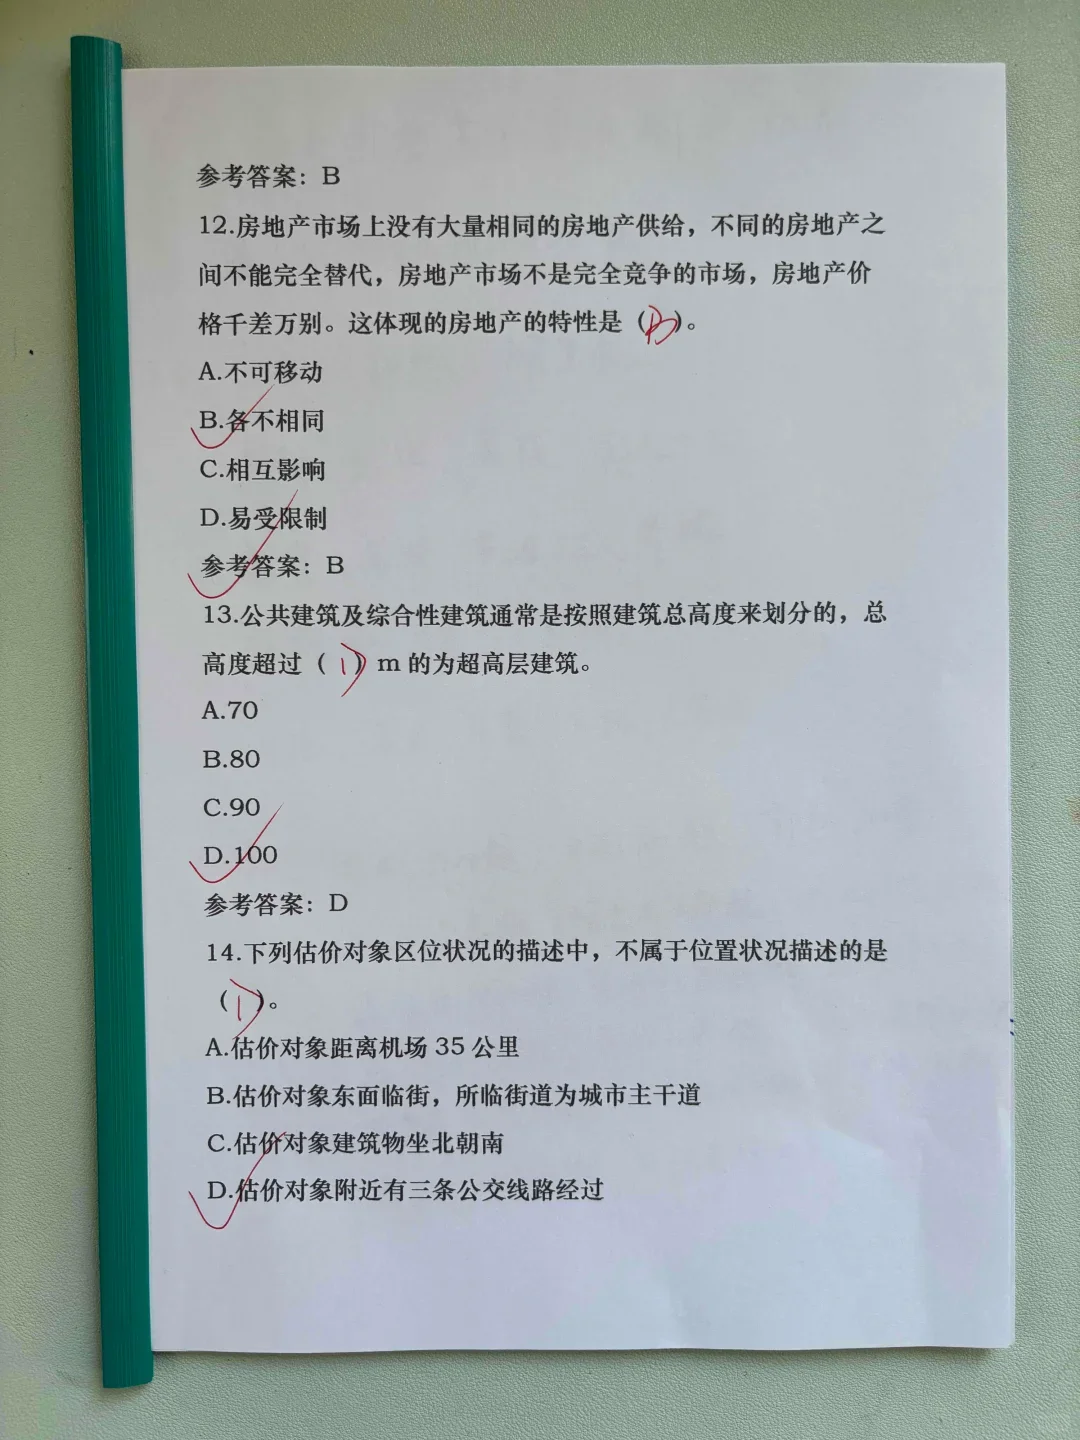 参考答案：B
12.房地产市场上没有大量相同的房地产供给，不同的房地产之
间不能完全替代，房地产市场不是完全竞争的市场，房地产价
格千差万别。这体现的房地产的特性是（B）。
A.不可移动
B.各不相同
C.相互影响
D.易受限制
参考答案：B
13.公共建筑及综合性建筑通常是按照建筑总高度来划分的，总
高度超过（D）m 的为超高层建筑。
A.70
B.80
C.90
D.100
参考答案：D
14.下列估价对象区位状况的描述中，不属于位置状况描述的是
（D）。
A.估价对象距离机场 35 公里
B.估价对象东面临街，所临街道为城市主干道
C.估价对象建筑物坐北朝南
D.估价对象附近有三条公交线路经过